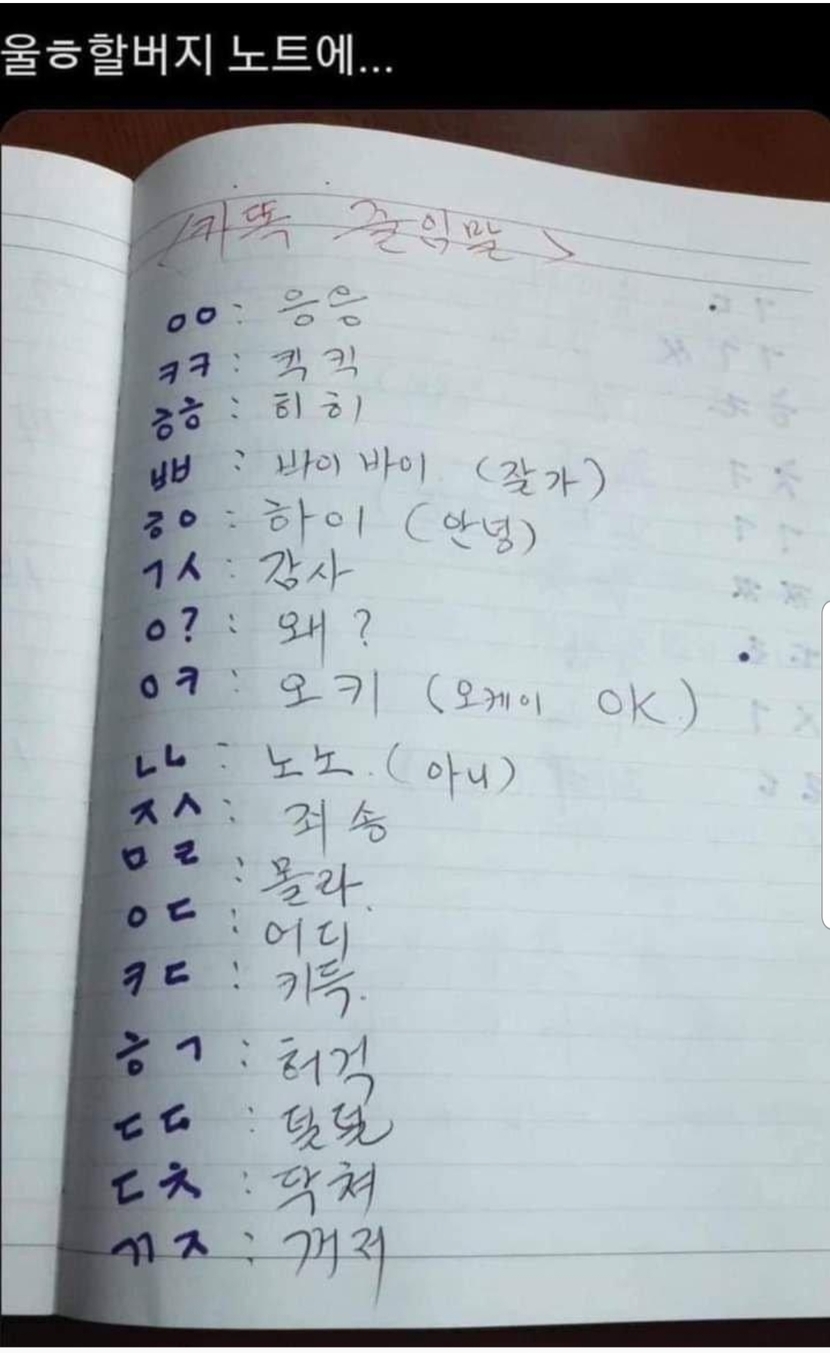 울ㅎ할버지 노트에...
<카똑 줄임말>
ㅇㅇ : 응응
ㅋㅋ : 킥킥
ㅎㅎ : 히히
ㅂㅂ : 바이바이. (잘가)
ㅎㅇ : 하이 (안녕)
ㄱㅅ : 감사
ㅇ? : 왜?
ㅇㅋ : 오키 (오케이 OK.)
ㄴㄴ : 노노. (아니)
ㅈㅅ : 죄송
ㅁㄹ : 몰라.
ㅇㄷ : 어디
ㅋㄷ : 키득.
ㅎㄱ : 허걱
ㄷㄷ : 덜덜
ㄷㅊ : 닥쳐
ㄲㅈ : 꺼져